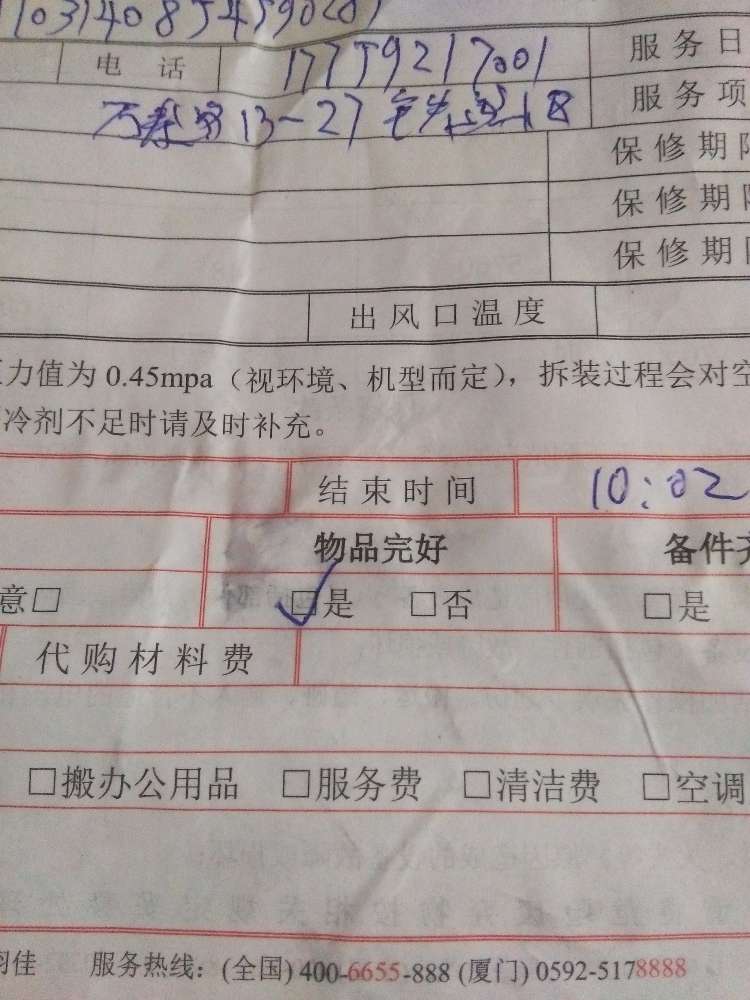 电话 17759217001 服务日
13-27 服务项
保修期限
保修期
保修期
出风口温度
力值为0.45mpa（视环境、机型而定），拆装过程会对空
冷剂不足时请及时补充。
结束时间 10:02
物品完好 备件齐
意□ □是 □否 □是
代购材料费
□搬办公用品 □服务费 □清洁费 □空调
羽佳 服务热线：(全国) 400-6655-888 (厦门) 0592-5178888